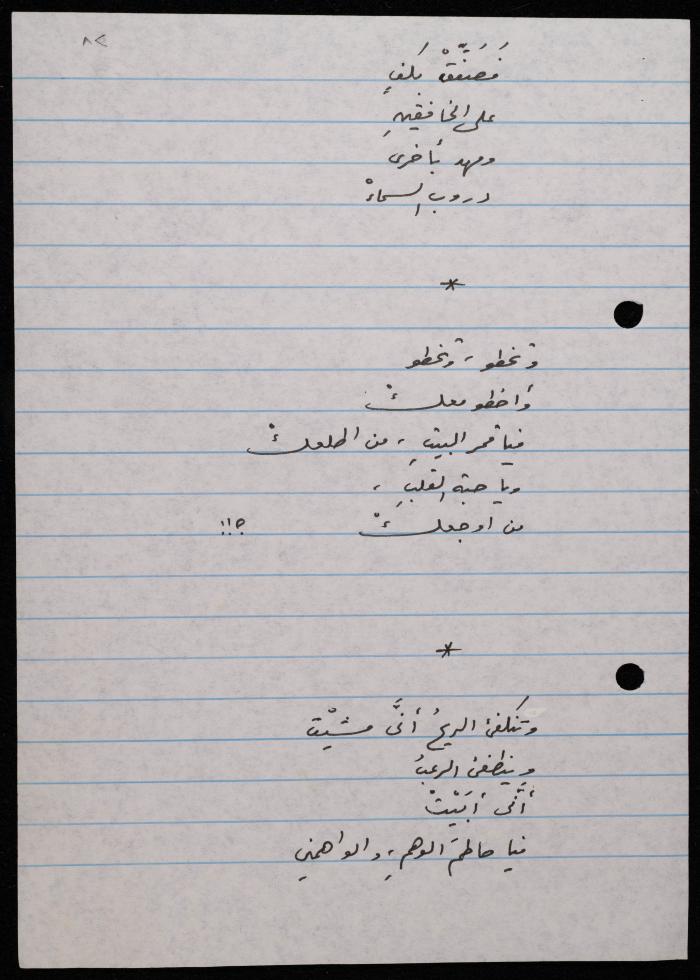 ٨٢
فَصَفَّقْ بكفٍ
على الخافقينِ
ومهد بأخرى
دروب السماءْ
*
وتخطو ، وتخطو
وأخطو معكْ
فيا قمر البيتِ ، من اطلعكْ
ويا حبة القلبِ ،
من اوجعكْ ؟!!
*
وتنكفئ الريحُ أنَّى مشيْت
وينطفئ الرعبُ
أنَّى أبَيْتْ
فيا حاطمَ الوهمِ ، والواهمين